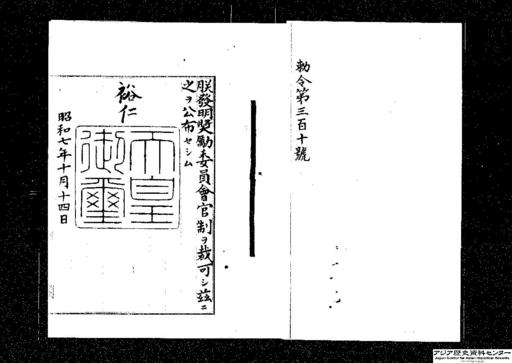 勅令第三百十號
朕發明奬勵委員會官制ヲ裁可シ茲ニ
之ヲ公布セシム
裕仁
天皇御璽
昭和七年十月十四日
アジア歴史資料センター
Japan Center for Asian Historical Records